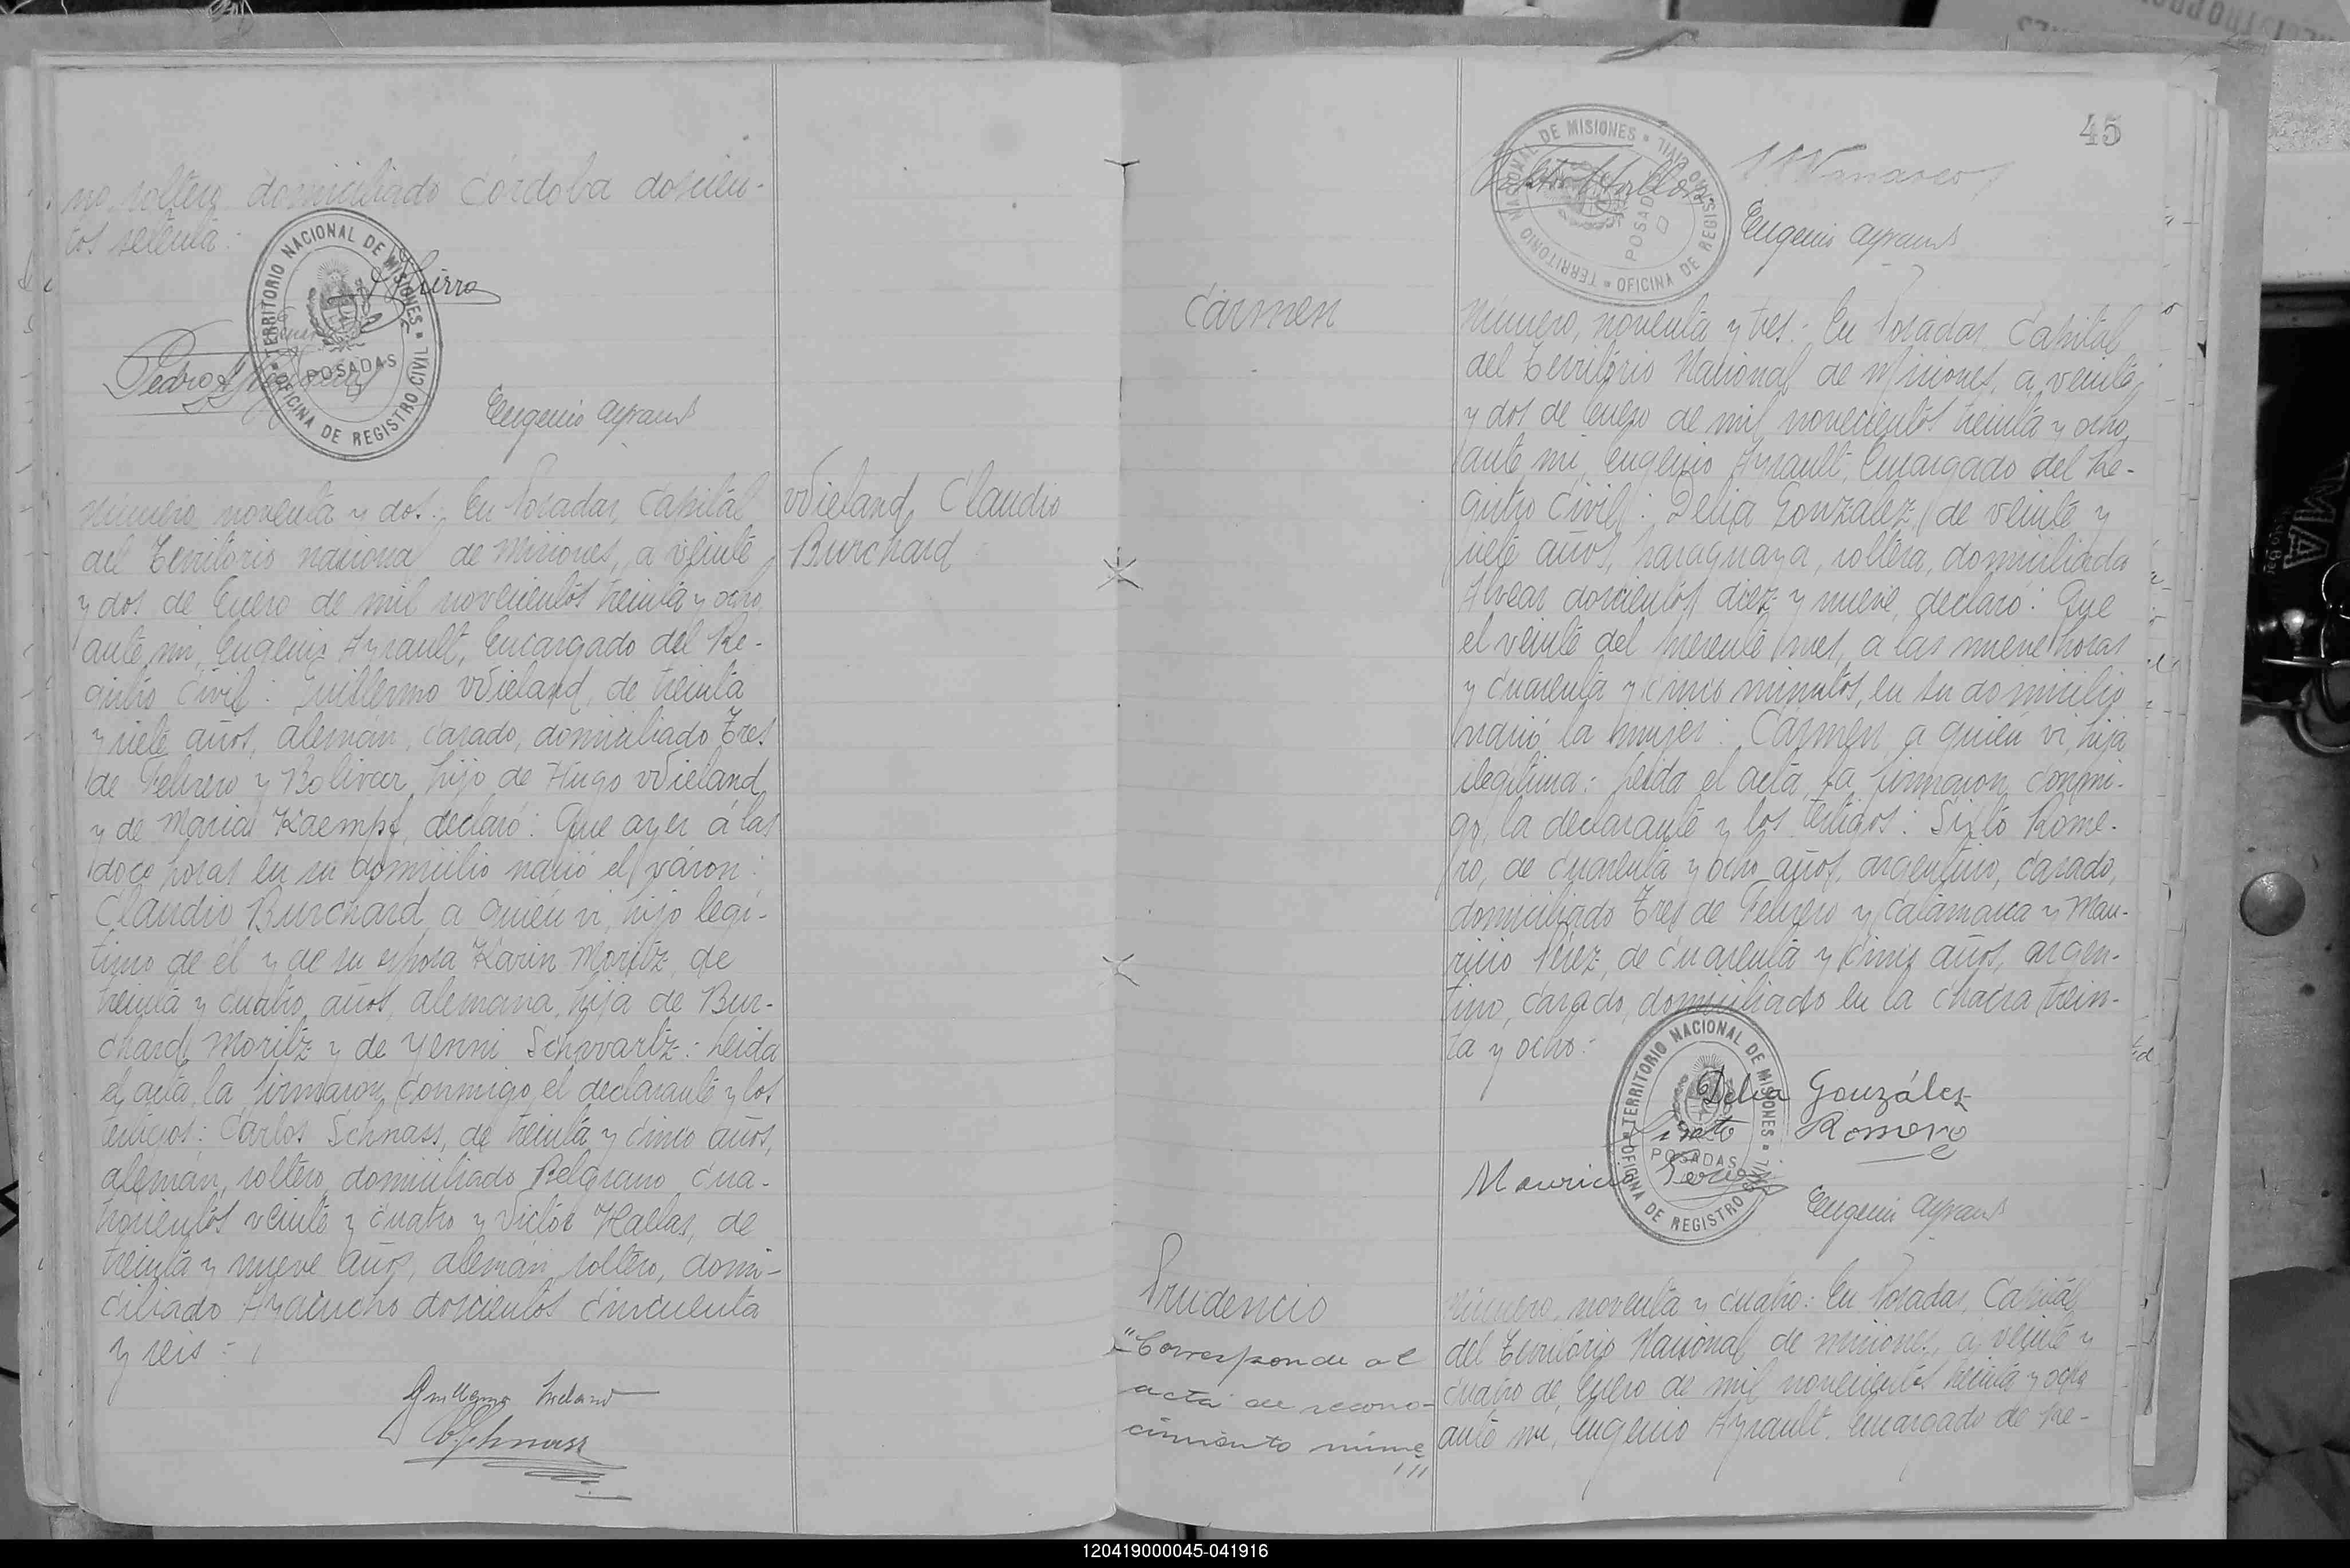 no, soltero, domiciliado Córdoba doscien-
tos setenta:
TERRITORIO NACIONAL DE MISIONES
POSADAS
OFICINA DE REGISTRO CIVIL
Pedro A
Eugenio Ayrault
Número, noventa y dos: En Posadas, Capital
del Territorio Nacional de Misiones, a veinte
y dos de Enero de mil novecientos treinta y ocho,
ante mi, Eugenio Ayrault, Encargado del Re-
gistro Civil: Guillermo Wieland, de treinta
y siete años, alemán, casado, domiciliado Tres
de Febrero y Bolivar, hijo de Hugo Wieland
y de Maria Kaempf, declaró: Que ayer á las
doce horas en su domicilio nació el váron:
Claudio Burchard, a quién vi, hijo legi-
timo de él y de su esposa Karin Moritz, de
treinta y cuatro años, alemana, hija de Bur-
chard Moritz y de Yenni Schwartz: Leida
el acta, la firmaron conmigo, el declarante y los
testigos: Carlos Schnass, de treinta y cinco años,
alemán, soltero, domiciliado Belgrano cua-
trocientos veinte y cuatro y Victor Hallas, de
treinta y nueve años, alemán, soltero, domi-
ciliado Ayacucho doscientos cincuenta
y seis:-
Guillermo Wieland
C. Schnass
Wieland, Claudio
Burchard
45
TERRITORIO NACIONAL DE MISIONES
POSADAS
OFICINA DE REGISTRO CIVIL
Eugenio Ayrault
Cármen
Número, noventa y tres: En Posadas, Capital
del Territorio Nacional de Misiones, a veinte
y dos de Enero de mil novecientos treinta y ocho,
ante mi, Eugenio Ayrault, Encargado del Re-
gistro Civil: Delia Gonzalez, de veinte y
siete años, paraguaya, soltera, domiciliada
Alvear doscientos diez y nueve, declaró: Que
el veinte del presente mes, a las nueve horas
y cuarenta y cinco minutos, en su domicilio
nació la mujer: Cármen, a quién vi, hija
ilegitima: Leida el acta, la firmaron conmi-
go, la declarante y los testigos: Sixto Rome-
ro, de cuarenta y ocho años, argentino, casado,
domiciliado Tres de Febrero y Catamarca y Mau-
ricio Pérez, de cuarenta y cinco años, argen-
tino, casado, domiciliado en la chacra trein-
ta y ocho:-
TERRITORIO NACIONAL DE MISIONES
POSADAS
OFICINA DE REGISTRO CIVIL
Delia González
Sixto Romero
Mauricio Perez
Eugenio Ayrault
Prudencio
"Corresponde al
acta de recono-
cimiento núme
Número, noventa y cuatro: En Posadas, Capital
del Territorio Nacional de Misiones, a veinte y
cuatro de Enero de mil novecientos treinta y ocho
ante mi, Eugenio Ayrault, Encargado de Re-
120419000045-041916